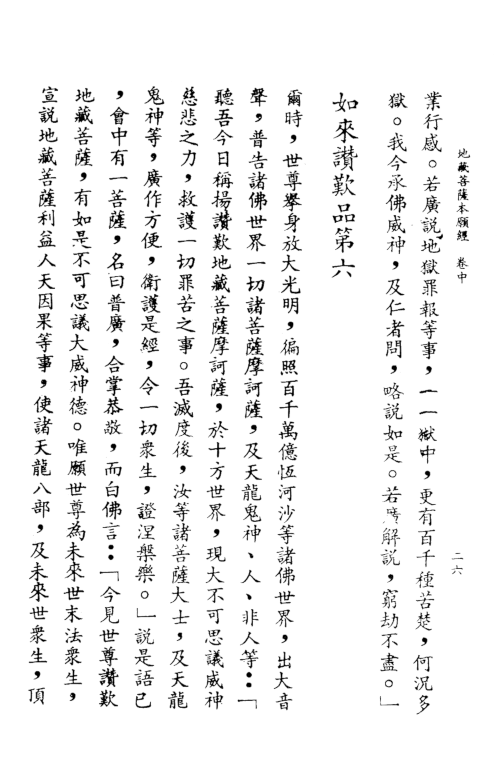 地藏菩薩本願經　卷中
二六
業行感。若廣說地獄罪報等事，一一獄中，更有百千種苦楚，何況多
獄。我今承佛威神，及仁者問，略說如是。若廣解說，窮劫不盡。」
如來讚歎品第六
爾時，世尊舉身放大光明，徧照百千萬億恆河沙等諸佛世界，出大音
聲，普告諸佛世界一切諸菩薩摩訶薩，及天龍鬼神、人、非人等：「
聽吾今日稱揚讚歎地藏菩薩摩訶薩，於十方世界，現大不可思議威神
慈悲之力，救護一切罪苦之事。吾滅度後，汝等諸菩薩大士，及天龍
鬼神等，廣作方便，衛護是經，令一切衆生，證涅槃樂。」說是語已
，會中有一菩薩，名曰普廣，合掌恭敬，而白佛言：「今見世尊讚歎
地藏菩薩，有如是不可思議大威神德。唯願世尊為未來世末法衆生，
宣說地藏菩薩利益人天因果等事，使諸天龍八部，及未來世衆生，頂